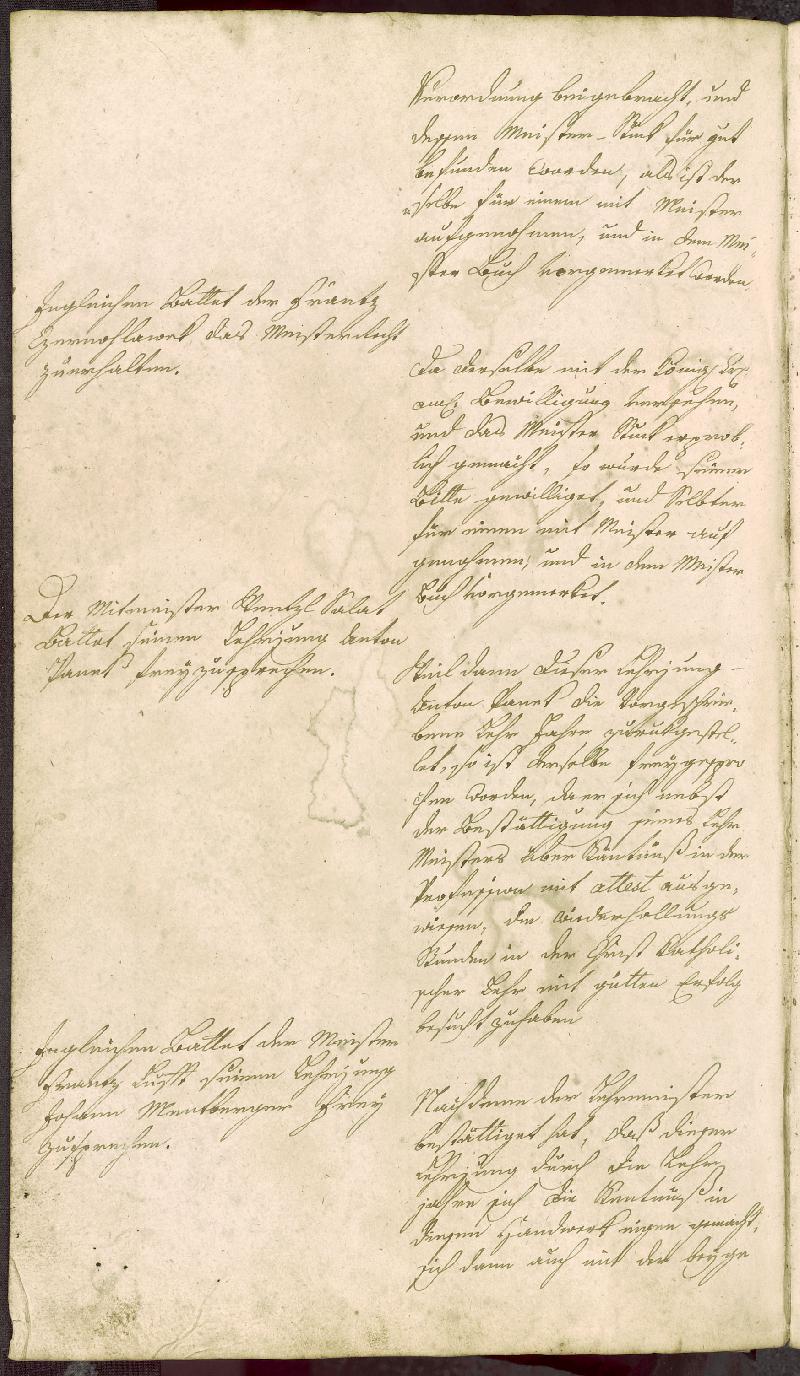 Verordnung beigebracht, und
dessen Meister-Stuk für gut
befunden worden, als ist der
selbe für einem mit Meister
aufgenohmen, und in dem Mei-
ster Buch vorgemerket worden.
Ingleichen Battet der Frantz
Czernohlawek das Meisterrecht
zuerhalten.
Da derselbe mit der König:
Bewilligung versehen,
und das Meister Stuck erprob-
lich gemacht, so wurde seiner
Bitte gewilliget, und Selbter
für einen mit Meister auf
genohmen, und in dem Meister
Buch Vorgemerket.
Der Mitmeister Wentzl Salat
Battet seinen Lehrjung Anton
Panek freyzusprechen.
Weil dann dieser Lehrjung
Anton Panek die Vorgeschrie-
bene Lehr Jahre zurukgestel-
let, so ist derselbe freygespro
chen worden, da er sich nebst
der Bestättigung seines Lehr
Meisters über Käntnuß in der
Profession mit attest ausge-
wiesen, die wiederhollungs
Stunden in der Christ Katholi-
scher Lehr mit gutten Erfolg
besucht zuhaben
Ingleichen Battet der Meister
Frantz seinen Lehrjung
Johann Mentberger Frey
zusprechen.
Nachdeme der Lehrmeister
bestättiget hat, daß dieser
Lehrjung durch die Lehr
jahre sich die Kentnuß in
diesen Handwerk eigen gemacht,
sich dann auch mit der beyge